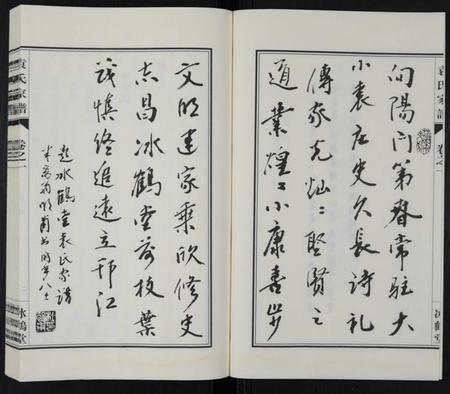 向陽門第春常駐大
小袁庄史久長詩礼
傳家光灿〻聖賢之
道業煌〻小康喜步
文明建家乘欣修史
志昌冰鶴堂前枝葉
茂慎終追遠立邗江
題冰鶴堂袁氏家譜
袁氏家譜
卷之一
冰鶴堂